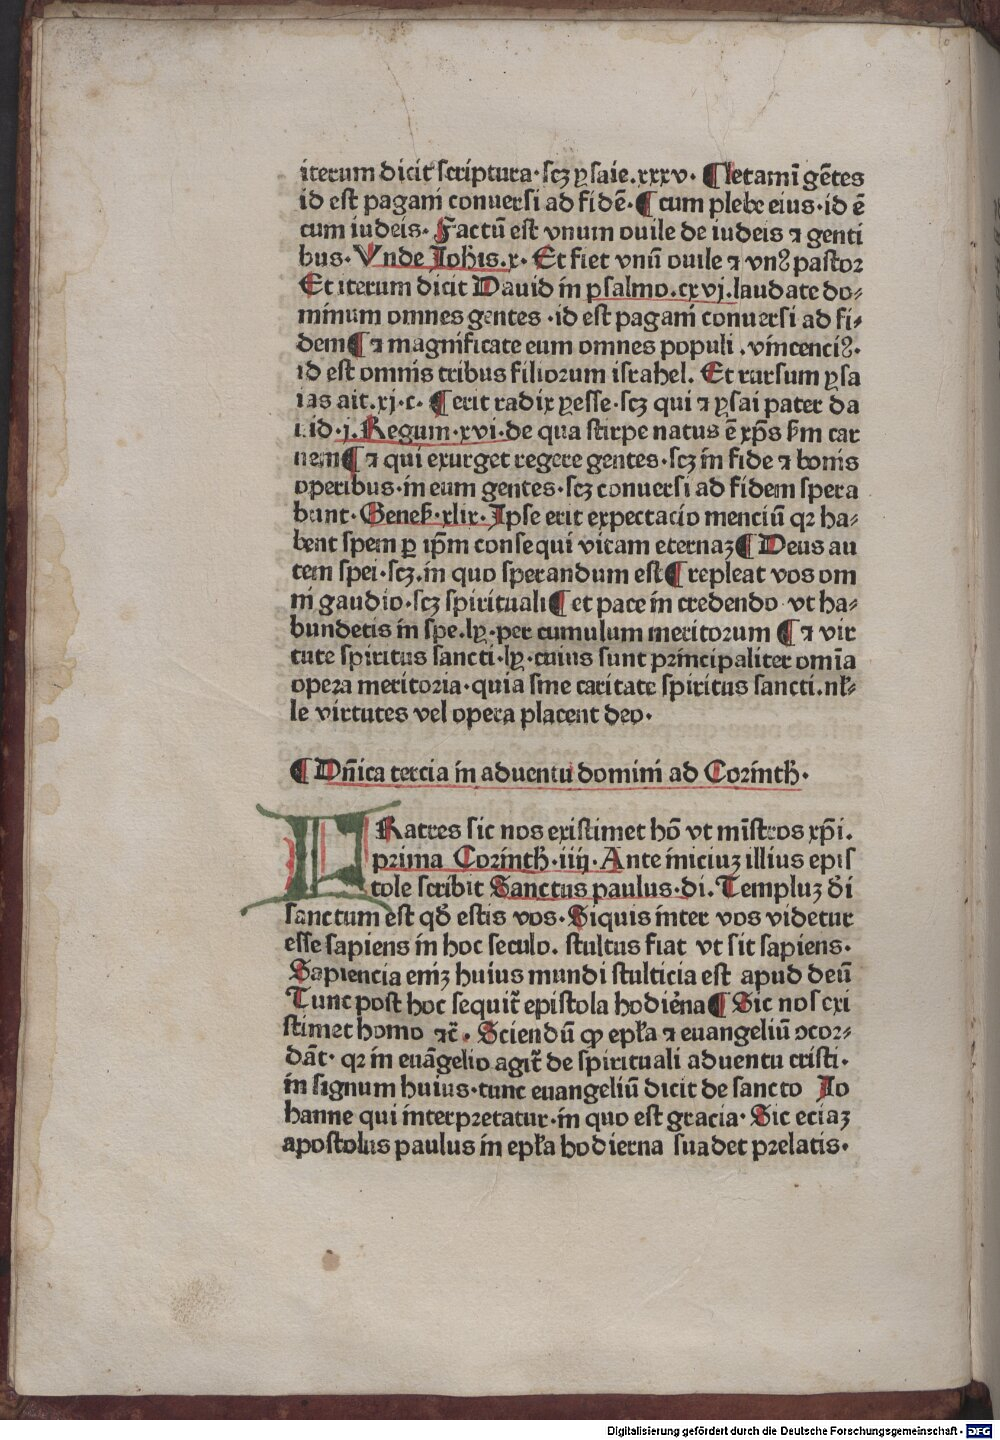 iterum dicit scriptura·scꝫ ysaie.xxxv· ¶ letamī gētes
id est pagani conuersi ad fidē·¶ cum plebe eius·id ē
cum iudeis· Factū est vnum ouile de iudeis ⁊ genti
bus·Vnde Joh̄is.x· Et fiet vnū ouile ⁊ vnꝰ pastor
Et iterum dicit Dauid in psalmo.cxvj.laudate do⸗
minum omnes gentes ·id est pagani conuersi ad fi⸗
dem¶ ⁊ magnificate eum omnes populi .vincenciꝰ·
id est omnis tribus filiorum israhel. Et rursum ysa
ias ait.xj·c· ¶ erit radix yesse·scꝫ qui ⁊ ysai pater da
uid·j.Regum·xvi·de qua stirpe natus ē xp̄s ẜm car
nem¶ ⁊ qui exurget regere gentes·scꝫ in fide ⁊ bonis
operibus·in eum gentes·scꝫ conuersi ad fidem spera
bunt·Geneẜ·xlix·Ipse erit expectacio genciū qꝛ ha⸗
bent spem ꝑ ip̄m consequi vitam eternaꝫ¶ Deus au
tem spei·scꝫ.in quo sperandum est¶ repleat vos om
ni gaudio·scꝫ spirituali¶ et pace in credendo vt ha⸗
bundetis in spe.lꝫ·per cumulum meritorum ¶ ⁊ vir
tute spiritus sancti·lꝫ·cuius sunt principaliter omīa
opera meritoria·quia sine caritate spiritus sancti.nł⸗
le virtutes vel opera placent deo·
¶ Dn̄ica tercia in aduentu domini ad Corinth̄·
FRatres sic nos existimet hō vt mīstros xp̄i.
prima Corinth̄·iiij·Ante iniciuꝫ illius epis
tole scribit Sanctus paulus·di.Templuꝫ d̄i
sanctum est qd̄ estis vos·Siquis inter vos videtur
esse sapiens in hoc seculo. stultus fiat vt sit sapiens·
Sapiencia em̄ꝫ huius mundi stulticia est apud deū
Tunc post hoc sequit̄ epistola hodiėna¶ Sic nos exi
stimet homo ⁊c̄. Sciendū ꝙ epła ⁊ euangeliū ↄcor⸗
dāt· qꝛ in euāgelio agit̄ de spirituali aduentu cristi·
in signum huius·tunc euangeliū dicit de sancto Jo
hanne qui interpretatur·in quo est gracia·Sic eciaꝫ
apostolus paulus in epła hodierna suadet prelatis·
Digitalisierung gefördert durch die Deutsche Forschungsgemeinschaft - DFG